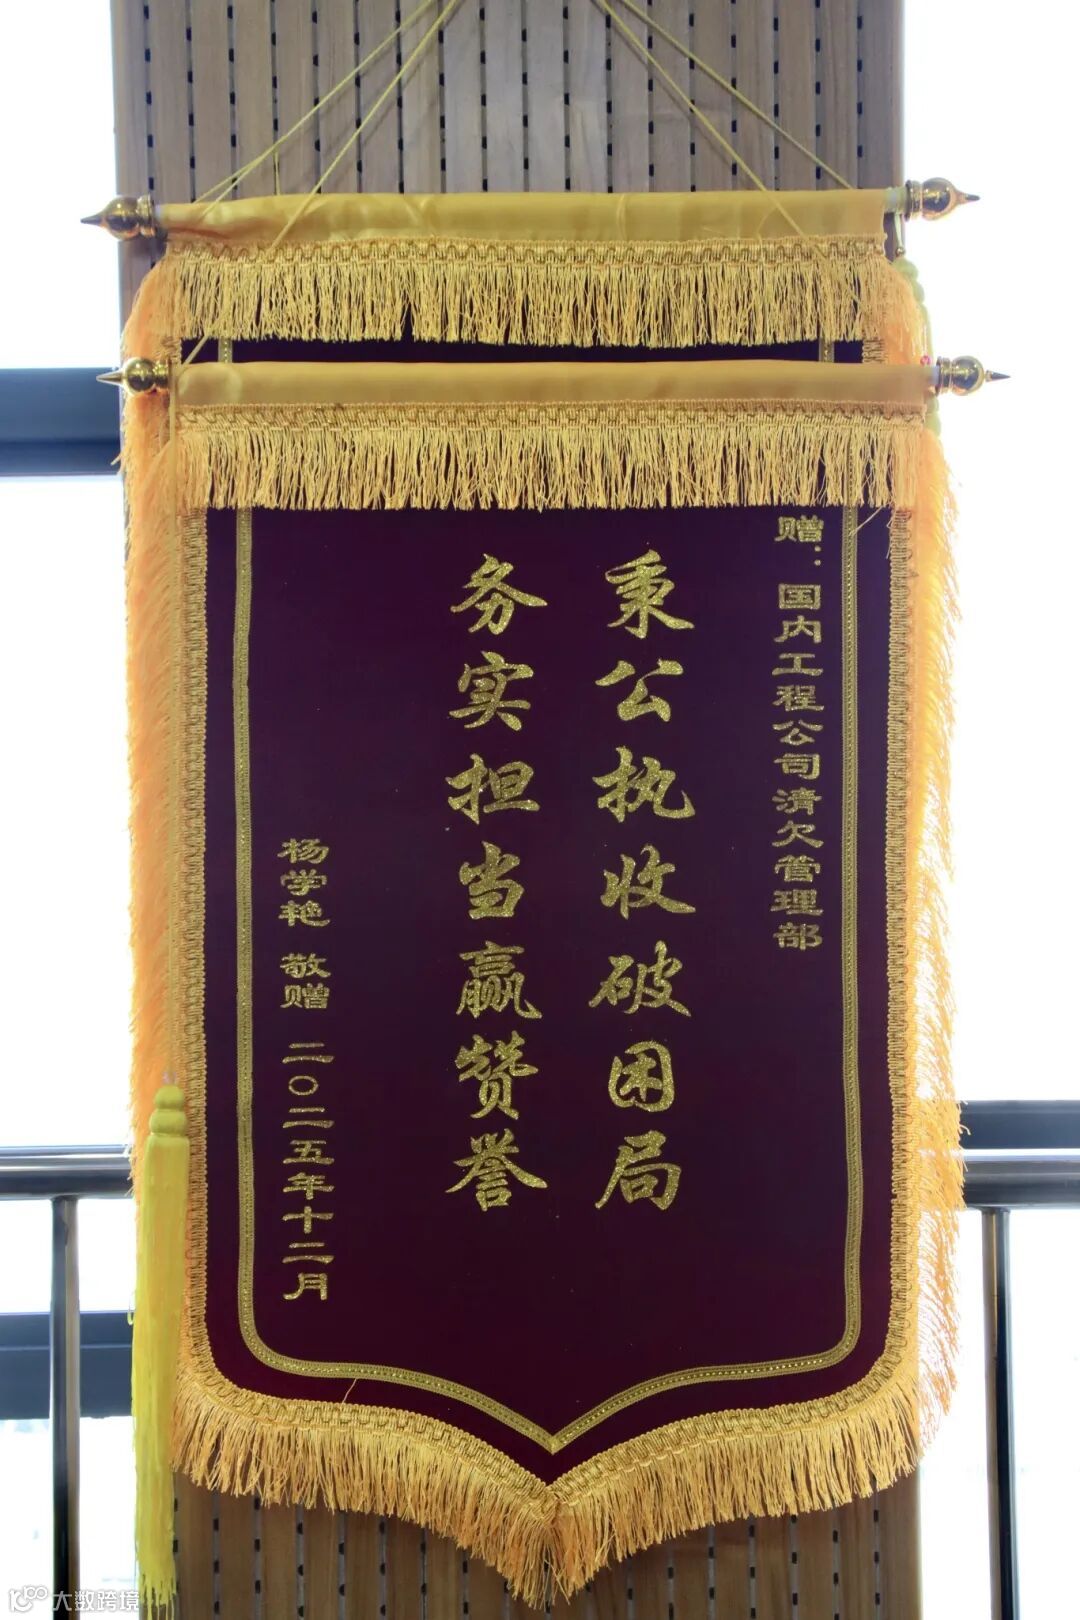 赠：国内工程公司清欠管理部
秉公执收破困局
务实担当赢赞誉
杨学艳 敬赠 二〇二五年十二月
大数跨境